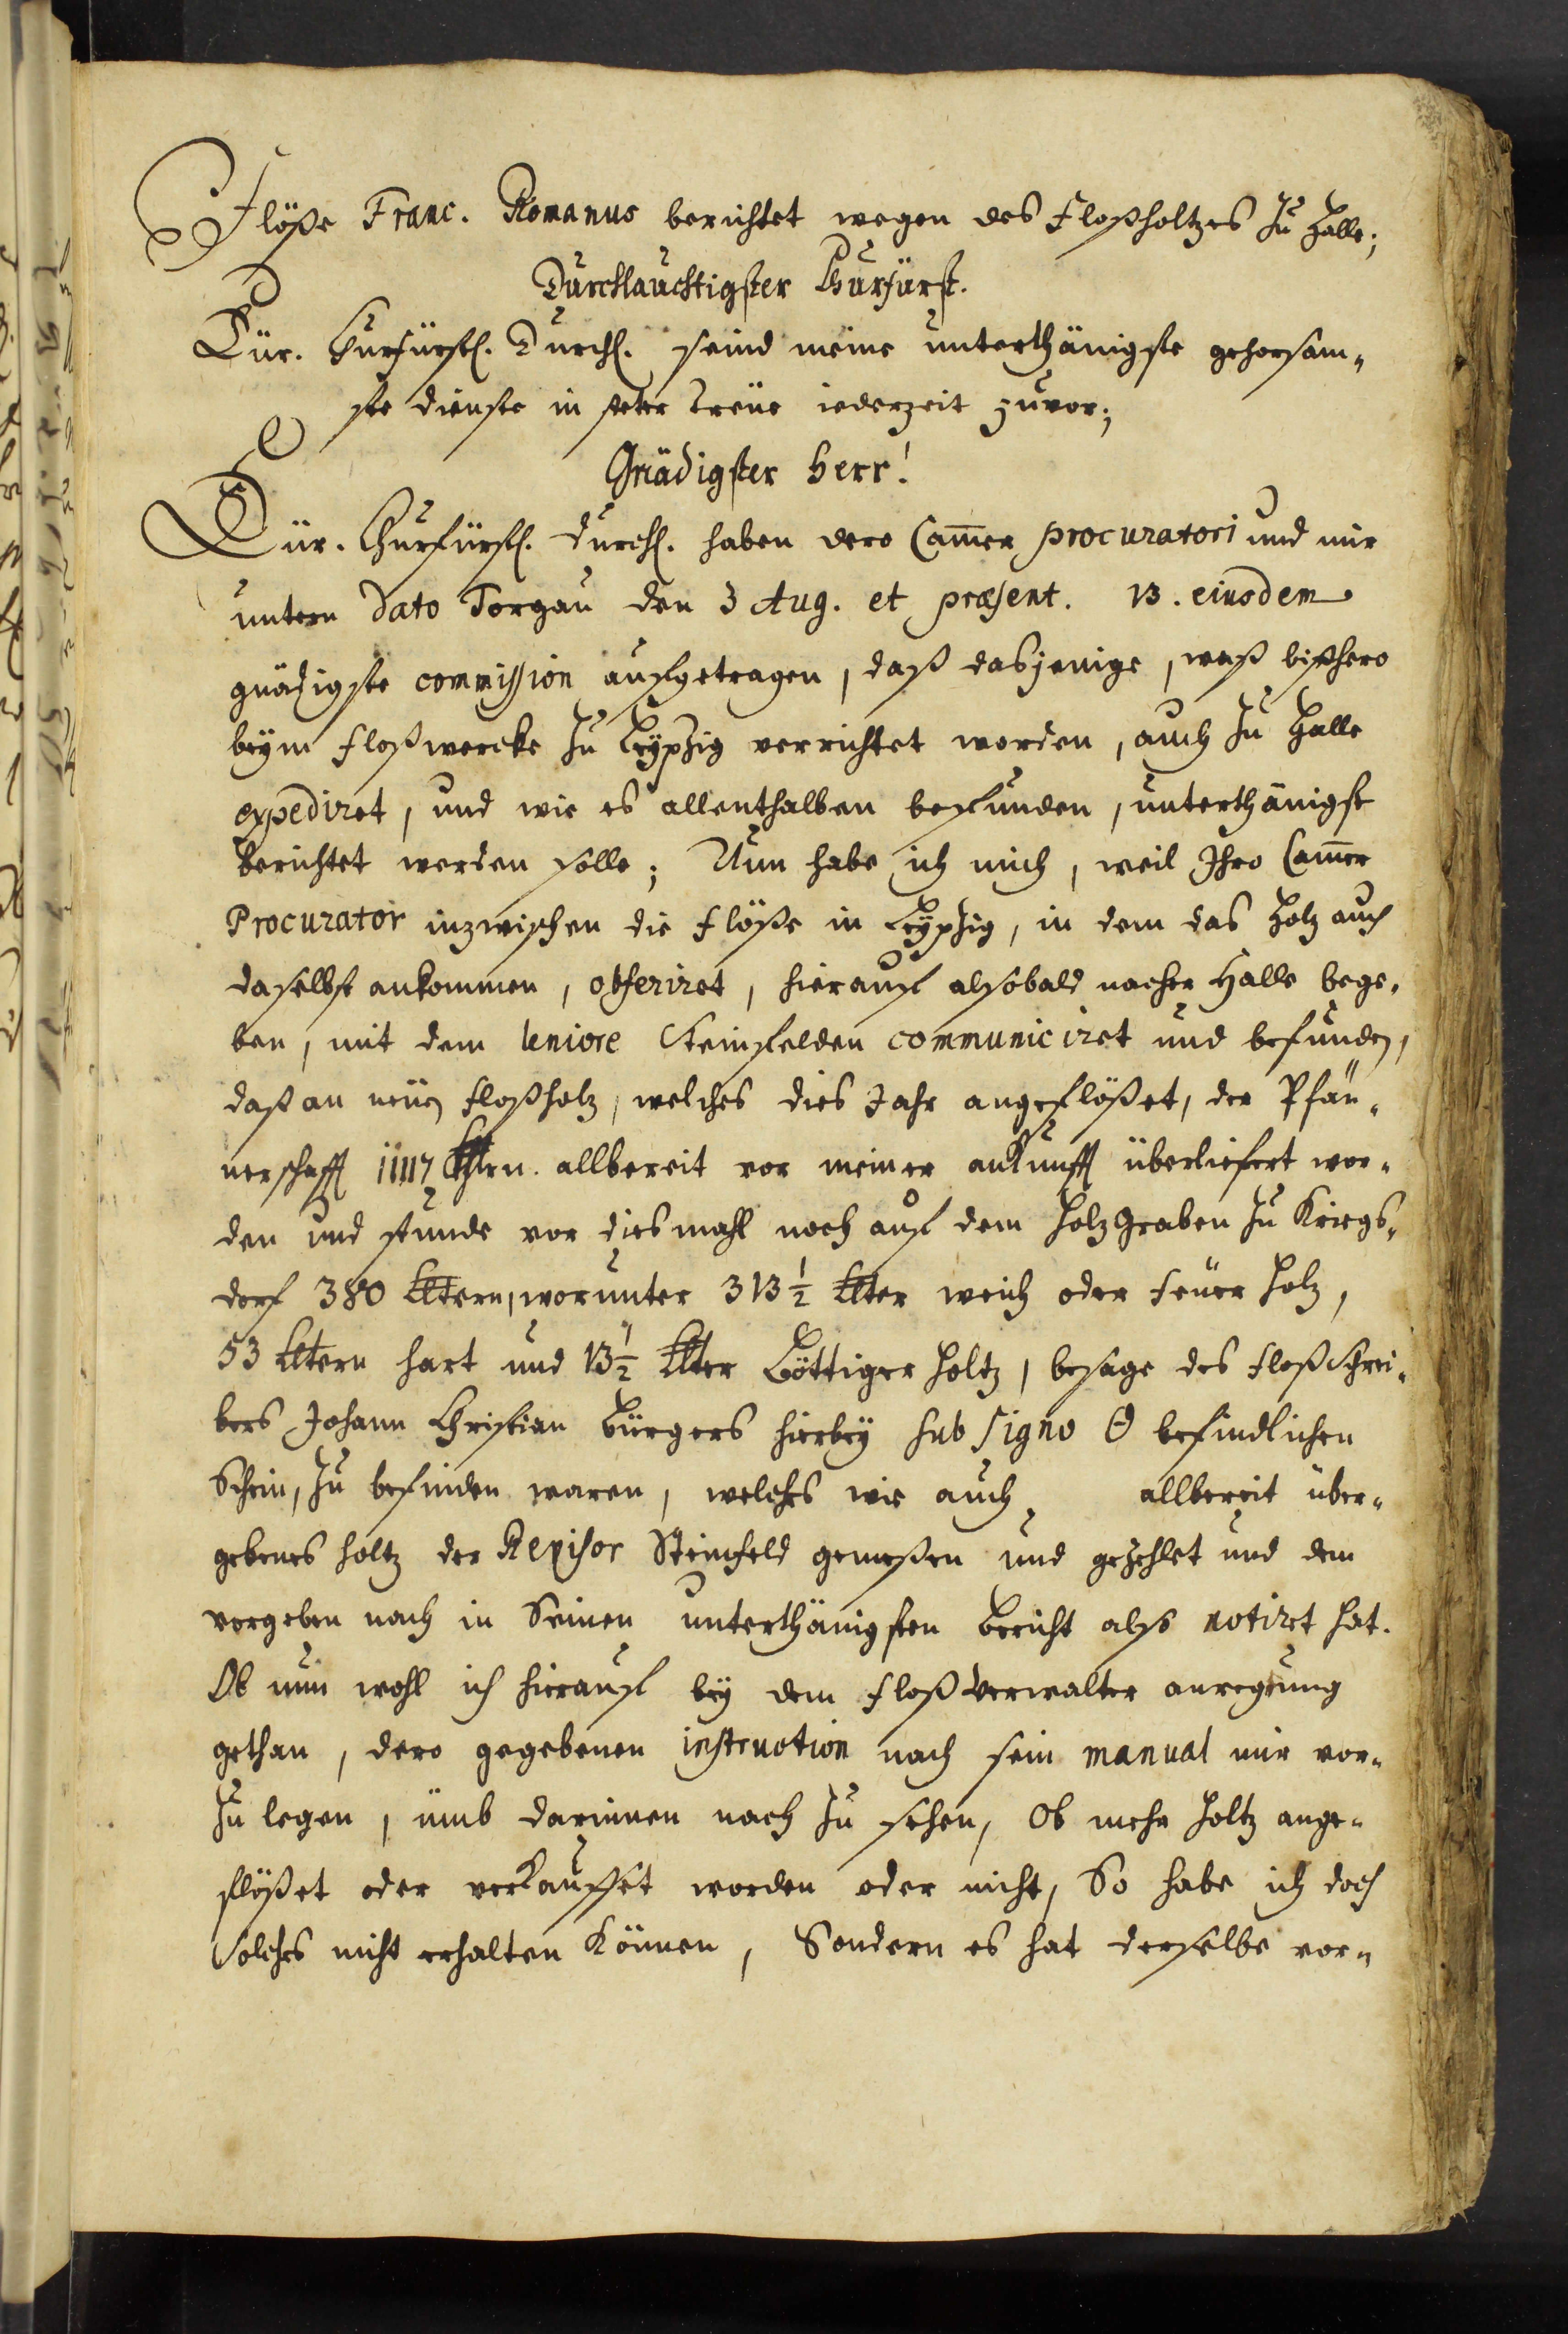 Flöße Franc. Romanus berichtet wegen des Floßholtzes zu Halle;
Durchlauchtigster Churfürst.
Eür. Churfürstl. Durchl. seind meine unterthänigste gehorsam-
ste dienste in steter treüe iederzeit zuvor;
Gnädigster Herr!
Eür. Churfürstl. Durchl. haben dero Cam̅er procuratori und mir
untern Dato Torgau den 3 Aug. et præsent. 13. eiusdem
gnädigste commission aufgetragen, daß dasjenige, waß bißhero
beÿm floßwercke zu Leÿpzig verrichtet worden, auch zu Halle
expediret, und wie es allenthalben befunden, unterthänigst
berichtet werden solle; Nun habe ich mich, weil Ihro Cam̅er
Procurator inzwischen die flöße in Leÿpzig, in dem das Holz auch
daselbst ankommen, obseriret, hierauf alsobald nacher Halle bege-
ben, mit dem Steinfelden communiciret und befunden,
daß an neüen floßholz, welches dies Jahr angeflößet, der Pfän-
nerschafft 11117 Klftrn. allbereit vor meiner ankunfft überliefert wor-
den und stunde vor diesmahl noch auf dem Holzgraben zu Kriegs-
dorf 380 Klftern, worunter 313 ½ Klfter weich oder feüer Holz,
53 Klftern hart und 13 ½ Klfter Böttiger Holtz, besage des floßschrei-
bers Johann Christian Bürgers hierbeÿ sub signo Θ befindlichen
Schein, zu befinden waren, welches wie auch allbereit über-
gebenes holtz der Revisor Steinfeld gemeßen und gezehlet und dem
vorgeben nach in Seinen unterthänigsten bericht also notiret hat.
Ob nun wohl ich hierauf beÿ dem floßverwalter anregung
gethan, dero gegebenen instruction nach sein manual mir vor-
zu legen, ümb darinnen nach zu sehen, Ob mehr Holtz ange-
flößet oder verkauffet worden oder nicht, So habe ich doch
solches nicht erhalten können, Sondern es hat derselbe vor-